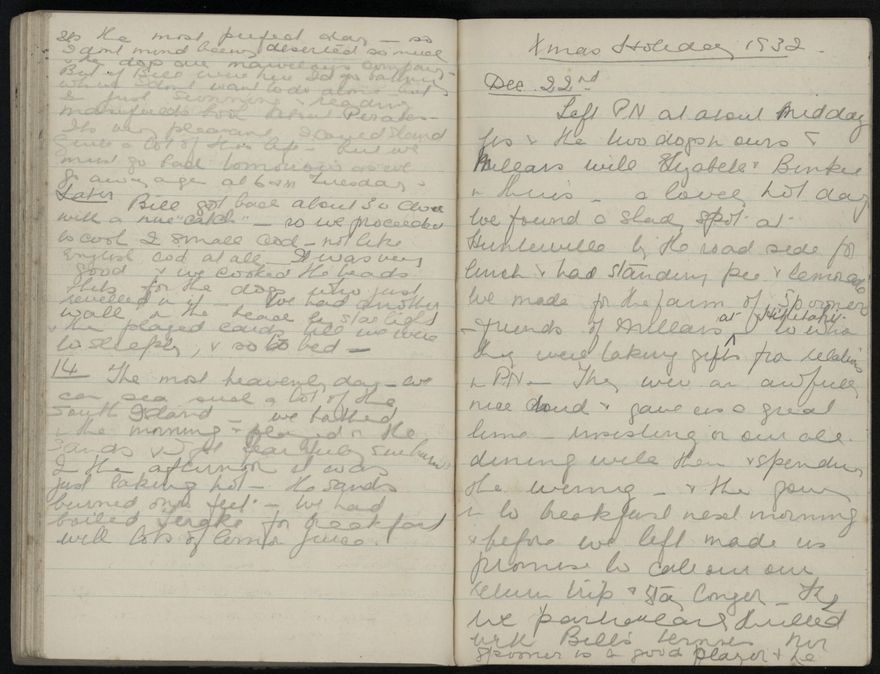 the most perfect day — so
I dont mind being deserted so much
the dogs are marvellous company —
But if Bill were here Id go bathing
which I dont want to do alone but
I just sunning & reading
book about Pirates —
Its very pleasant I could stand
quite a lot of this life — but we
must go back tomorrow as we
go away again at 6 am Tuesday.
Later Bill got back about 3 o'clock
with a nice "catch" — so we proceeded
to cook 2 small cod — not like
English cod at all. It was very
good & we cooked the heads
for the dogs who just
revelled in it — We had another
walk on the beach by starlight
& then played cards till we were
so sleepy, & so to bed —
14 The most heavenly day — we
can see such a lot of the
South Island — we bathed
in the morning & played on the
sands & got fearfully sunburnt
In the afternoon it was
just baking hot — the sands
burned ones feet — We had
boiled for breakfast
with lots of lemon juice.
Xmas Holiday 1932.
Dec. 22nd
Left PN at about Midday
us & the two dogs in ours &
Millars with Elyabeth & Binkie
in theirs — a lovely hot day
We found a shady spot at
Hunterville by the road side for
lunch & had standing pie & lemonade
We made for the farm of Spooner
— friends of Millars at to whom
they were taking gifts from relations
in PN — They were an awfully
nice crowd & gave us a great
time — insisting on our all
dining with them & spending
the evening — & then going
in to breakfast next morning
& before we left made us
promise to call on our
return trip & stay longer — They
were particularly thrilled
with Bill's tennis Mr
Spooner is a good player & he